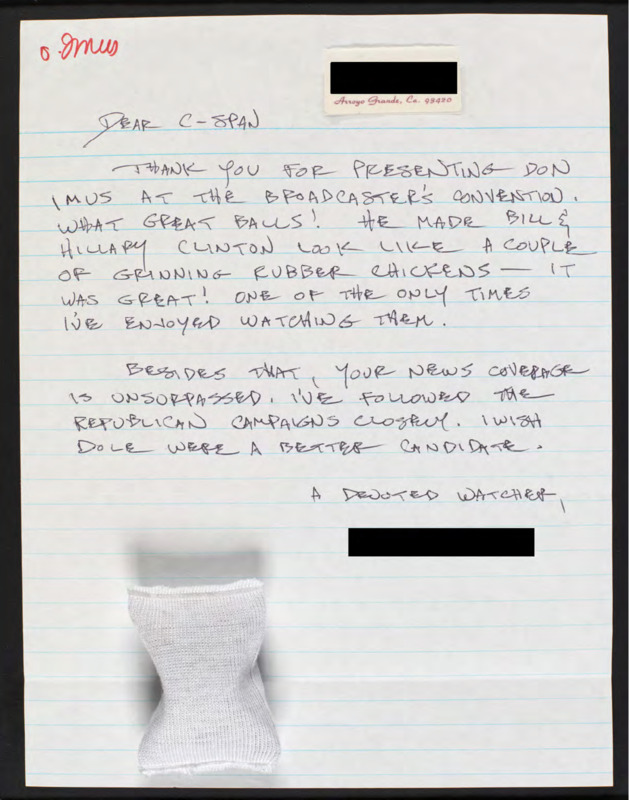 o Imus
Arroyo Grande, Ca. 93420
DEAR C-SPAN
THANK YOU FOR PRESENTING DON
IMUS AT THE BROADCASTER'S CONVENTION.
WHAT GREAT BALLS! HE MADE BILL &
HILLARY CLINTON LOOK LIKE A COUPLE
OF GRINNING RUBBER CHICKENS — IT
WAS GREAT! ONE OF THE ONLY TIMES
I'VE ENJOYED WATCHING THEM.
BESIDES THAT, YOUR NEWS COVERAGE
IS UNSURPASSED. I'VE FOLLOWED THE
REPUBLICAN CAMPAIGNS CLOSELY. I WISH
DOLE WERE A BETTER CANDIDATE.
A DEVOTED WATCHER,